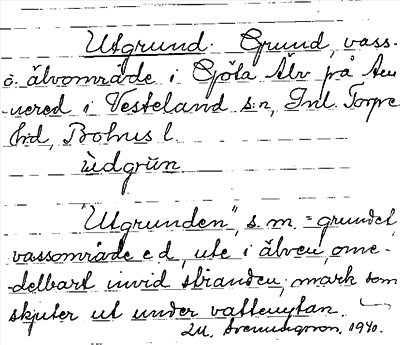 Utgrund. Grund, vass-
o. älvområde i Göta Älv på
nered i Vesteland s:n, Inl. Torpe
hd, Bohus l.
ùdgrūn
"Utgrunden", s. m. = grundet,
vassområde e d, ute i älven, ome-
delbart invid stranden; mark som
skjuter ut under vattenytan.
1940.